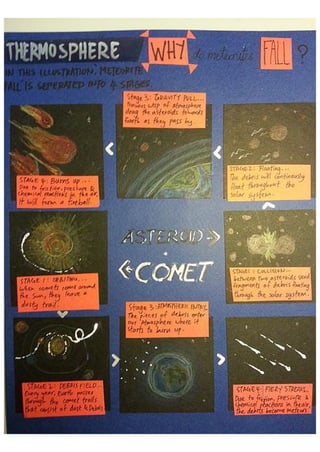 THERMOSPHERE
WHY do meteorites FALL ?
IN THIS ILLUSTRATION, METEORITE
FALL IS SEPERATED INTO 4 STAGES.
Stage 3: GRAVITY PULL...
of atmosphere
the asteroids towards
Earth as they pass by
STAGE 4: Burns up...
Due to friction, pressure &
chemical reactions in the air,
it will form a fireball.
STAGE 2: Floating...
The debris will continuously
float throughout the
solar system.
ASTEROID
COMET
STAGE 1: COLLISION...
between two asteroids send
fragments of debris floating
through the solar system.
STAGE 1: ORBITING...
When comets come around
the sun, they leave a
dusty trail.
Stage 3: ATMOSPHERIC ENTRY
The pieces of debris enter
our atmosphere where it
starts to burn up.
STAGE 2: DEBRIS FIELD...
Every year, Earth passes
through the comet trails
that consist of dust & Debris
STAGE 4: FIERY STREAKS...
Due to friction, pressure &
chemical reactions in the air,
the debris become meteors